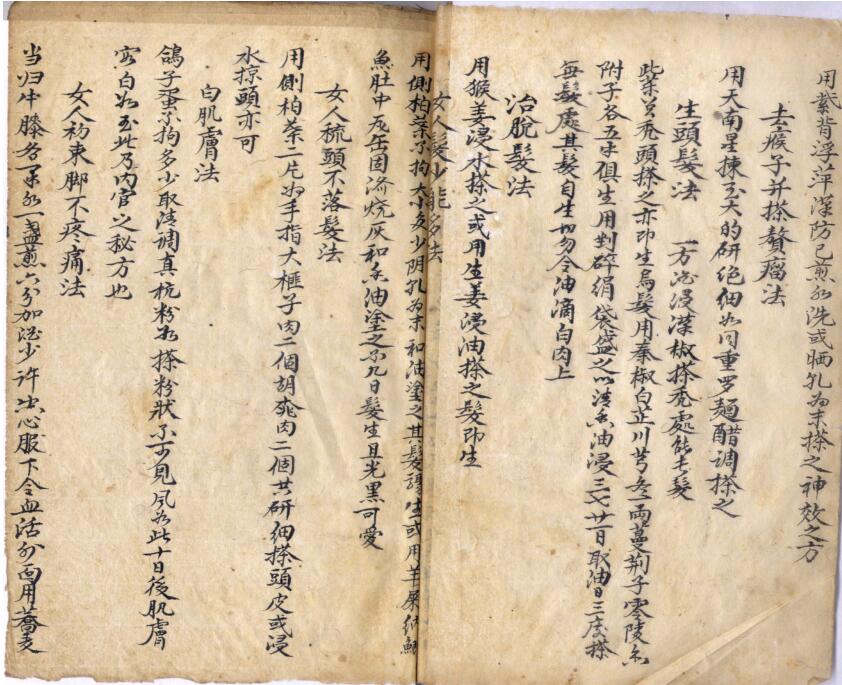 用紫背浮萍漢防已煎水洗或晒乳為末搽之神效之方
去瘊子并搽贅瘤法
用天南星揀至大的研絶細如同重罗麺醋调搽之
生頭髮法 一方酒浸漢椒搽秃處能長髮
此葉治秃頭搽之亦即生烏髮用秦椒白芷川芎各一兩蔓荆子零陵香
附子各五年俱生用剉碎絹袋盛之以清香油浸三七廿一日取油日三度搽
無髮處其髮自生切勿令油滴白肉上
治脫髮法
用猴姜浸水搽之或用生姜浸油搽之髮即生
女人髮少能多法
用側柏葉不拘大小多少阴乳為末和油塗之其髮驟生或用羊屎納鯽
魚肚中瓦缶固济烧灰和香油塗之不九日髮生且光黑可愛
女人梳頭不落髮法
用側柏葉一片如手指大榧子肉二個胡桃肉二個共研细搽頭皮或浸
水掠頭亦可
白肌膚法
鴿子蛋不拘多少取清调真杭粉如搽粉狀不可見風如此十日後肌膚
白如玉此乃内官之秘方也
女人初束脚不疼痛法
当归牛膝各一水一盏煎六分加酒少许空心服下令血活外面用蕎麦